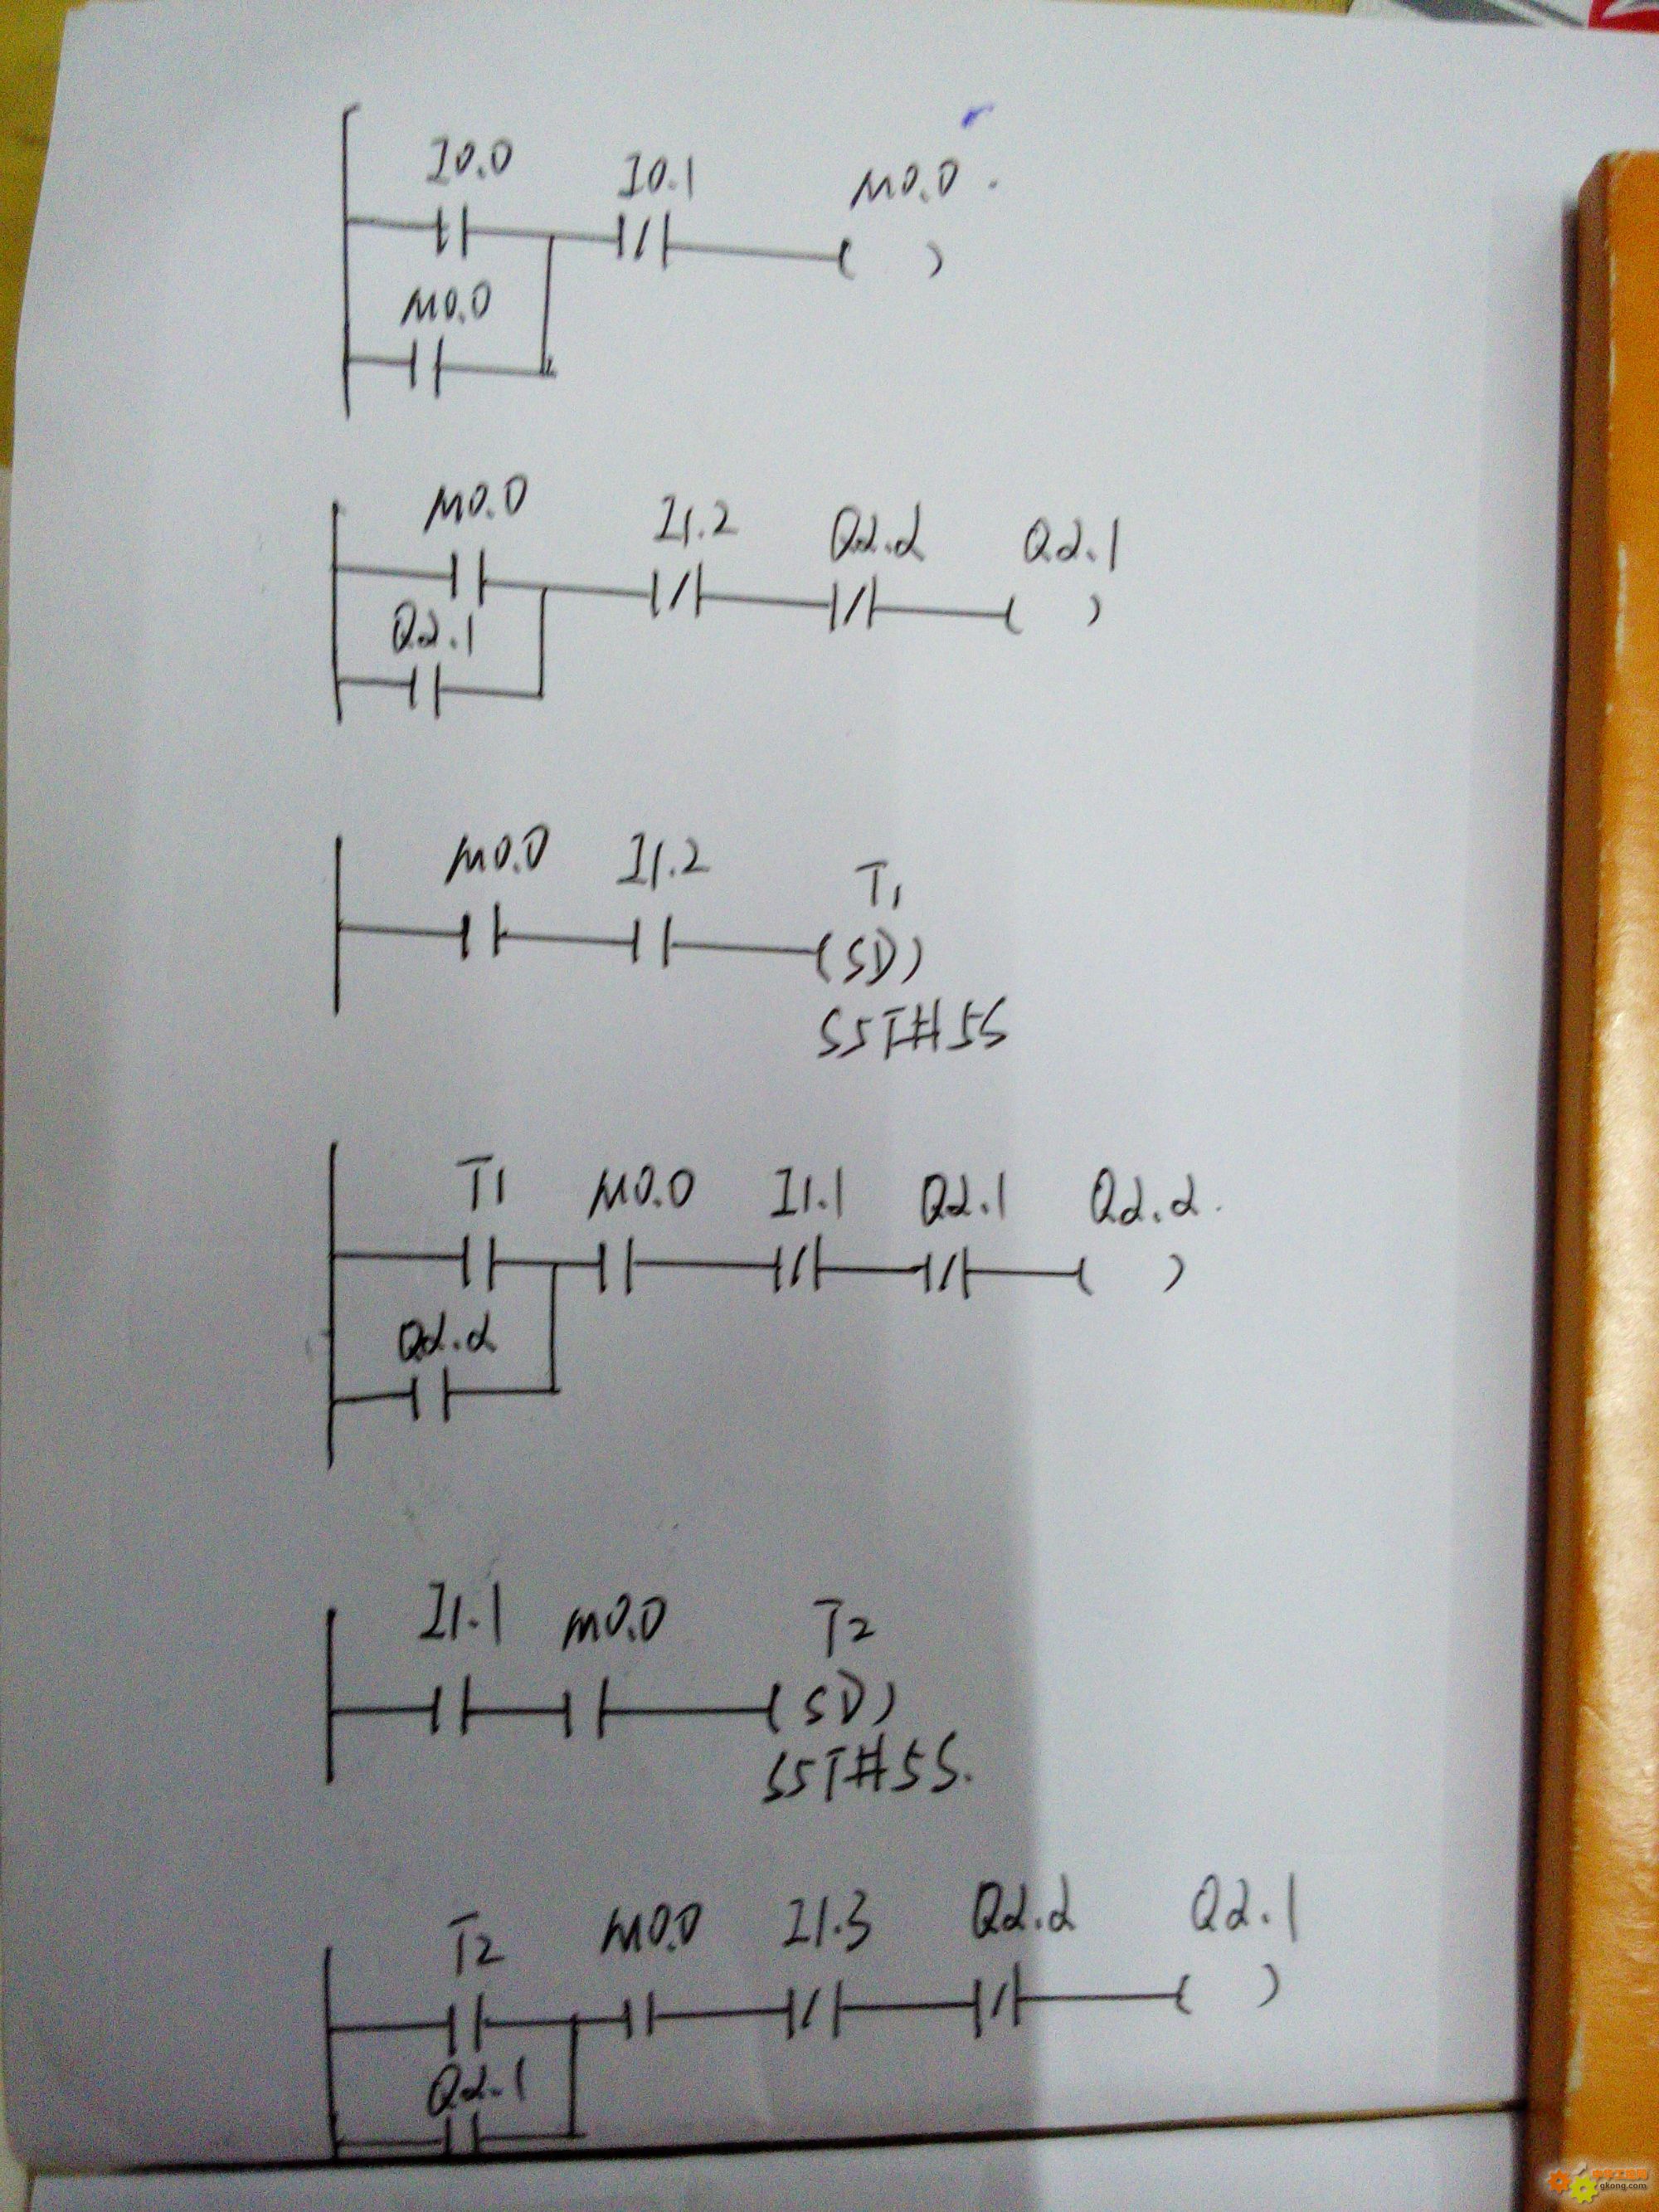 I0.0 I0.1 M0.0
M0.0
M0.0 I1.2 Q2.2 Q2.1
Q2.1
M0.0 I1.2 T1
(SD)
S5T#5S
T1 M0.0 I1.1 Q2.1 Q2.2
Q2.2
I1.1 M0.0 T2
(SD)
S5T#5S.
T2 M0.0 I1.3 Q2.2 Q2.1
Q2.1
gkong.com